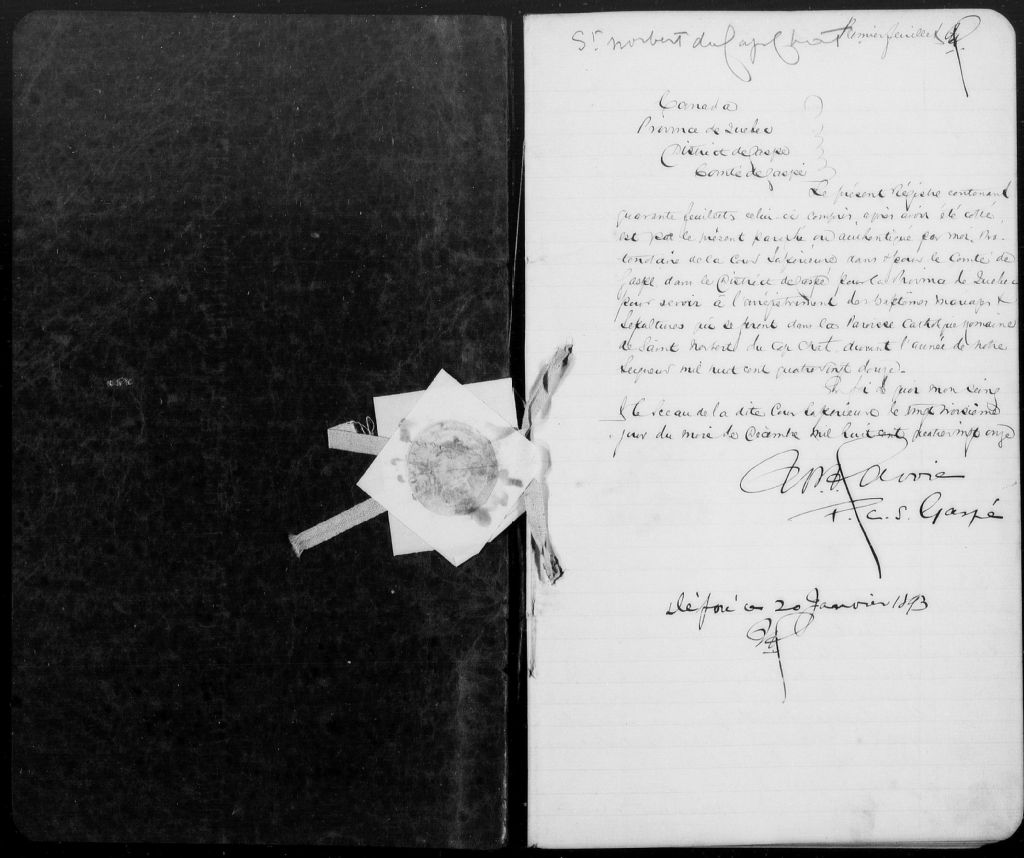 St Norbert du Cap Chat Premier feuillet
Canada
Province de Quebec
District de Gaspé
Comté de Gaspé
Le présent Régistre contenant
quarante feuillets celui-ci compris, après avoir été cotté
est par le présent paraphé ou authentiqué par moi, Pro-
tonotaire de la Cour Supérieure dans & pour le Comté de
Gaspé dans le District de Gaspé pour la Province de Quebec
pour servir à l'enrégistrement des baptêmes mariages &
Sepultures qui se feront dans la Paroisse Catholique Romaine
de Saint Norbert du Cap Chat, durant l'année de notre
Seigneur mil huit cent quatre vingt douze.
En foi de quoi mon seing
& le sceau de la dite Cour Superieure le vingt troisième
jour du mois de Décembre mil huit cent quatre vingt onze
P. C. S. Gaspé
Déposé ce 20 Janvier 1893